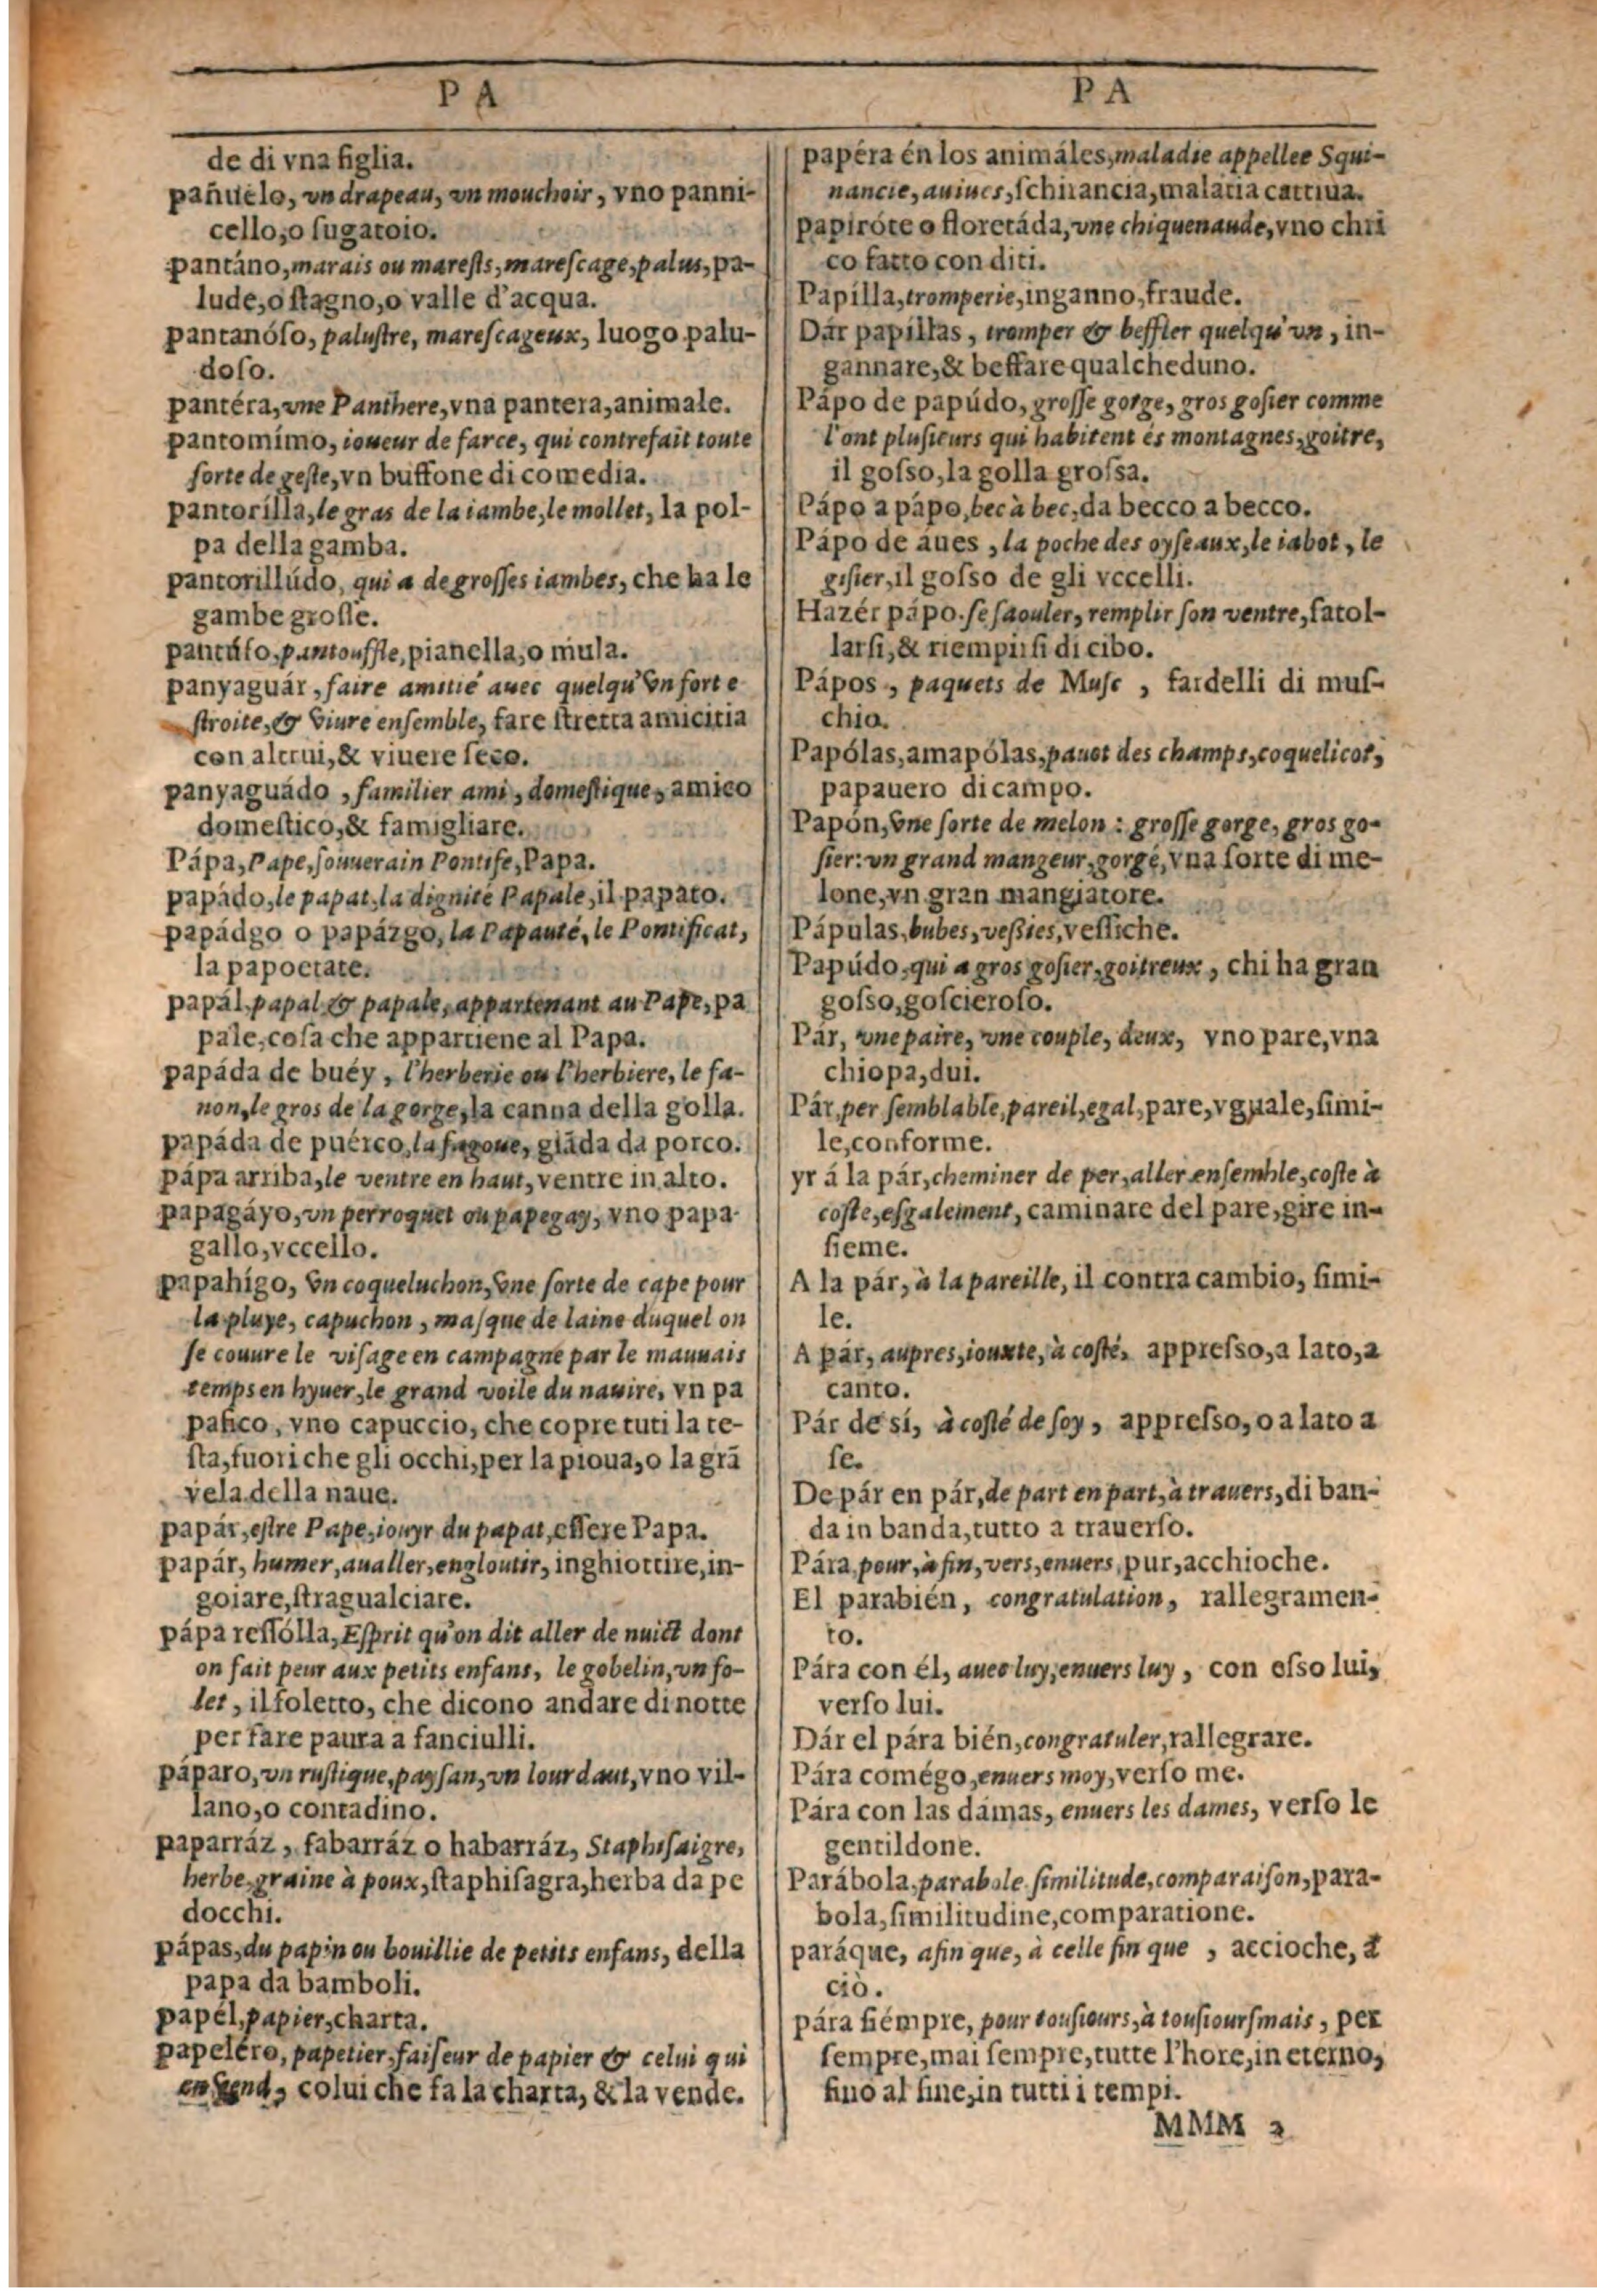 PA
de di vna figlia.
pañuélo, vn drapeau, vn mouchoir, vno panni-
cello, o ſugatoio.
pantáno, marais ou mareſts, mareſcage, palus, pa-
lude, o ſtagno, o valle d'acqua.
pantanóſo, paluſtre, mareſcageux, luogo palu-
doſo.
pantéra, vne Panthere, vna pantera, animale.
pantomímo, ioueur de farce, qui contrefait toute
ſorte de geſte, vn buffone di comedia.
pantorílla, le gras de la iambe, le mollet, la pol-
pa della gamba.
pantorillúdo, qui a de groſſes iambes, che ha le
gambe groſſe.
pantúfo, pantouffle, pianella, o mula.
panyaguár, faire amitié auec quelqu'vn fort e
ſtroite, & viure enſemble, fare ſtretta amicitia
con altrui, & viuere ſeco.
panyaguádo, familier ami, domeſtique, amico
domeſtico, & famigliare.
Pápa, Pape, ſouuerain Pontife, Papa.
papádo, le papat, la dignité Papale, il papato.
papádgo o papázgo, la Papauté, le Pontificat,
la papoctate.
papál, papal & papale, appartenant au Pape, pa
pale, coſa che appartiene al Papa.
papáda de buéy, l'herberie ou l'herbiere, le fa-
non, le gros de la gorge, la canna della golla.
papáda de puérco, la fagoue, giãda da porco.
pápa arriba, le ventre en haut, ventre in alto.
papagáyo, vn perroquet ou papegay, vno papa-
gallo, vccello.
papahígo, vn coqueluchon, vne ſorte de cape pour
la pluye, capuchon, maſque de laine duquel on
ſe couure le viſage en campagne par le mauuais
temps en hyuer, le grand voile du nauire, vn pa
pafico, vno capuccio, che copre tuti la te-
ſta, fuori che gli occhi, per la pioua, o la grã
vela della naue.
papár, eſtre Pape, iouyr du papat, eſſere Papa.
papár, humer, aualler, engloutir, inghiottire, in-
goiare, ſtragualciare.
pápa reſſólla, Eſprit qu'on dit aller de nuict dont
on fait peur aux petits enfans, le gobelin, vn fo-
let, il foletto, che dicono andare di notte
per fare paura a fanciulli.
páparo, vn ruſtique, payſan, vn lourdaut, vno vil-
lano, o contadino.
paparráz, fabarráz o habarráz, Staphiſaigre,
herbe, graine à poux, ſtaphiſagra, herba da pe
docchi.
pápas, du papin ou bouillie de petits enfans, della
papa da bamboli.
papél, papier, charta.
papeléro, papetier, faiſeur de papier & celui qui
en vend, colui che fa la charta, & la vende.
PA
papéra én los animáles, maladie appellee Squi-
nancie, auiues, ſchirancia, malatia cattiua.
papiróte o floretáda, vne chiquenaude, vno chri
co fatto con diti.
Papílla, tromperie, inganno, fraude.
Dár papíllas, tromper & beffler quelqu'vn, in-
gannare, & beffare qualcheduno.
Pápo de papúdo, groſſe gorge, gros goſier comme
l'ont pluſieurs qui habitent és montagnes, goitre,
il goſſo, la golla groſſa.
Pápo a pápo, bec à bec, da becco a becco.
Pápo de áues, la poche des oyſeaux, le iabot, le
giſier, il goſſo de gli vccelli.
Hazér pápo. ſe ſaouler, remplir ſon ventre, ſatol-
larſi, & riempirſi di cibo.
Pápos, paquets de Muſc, fardelli di muſ-
chio.
Papólas, amapólas, pauot des champs, coquelicot,
papauero di campo.
Papón, vne ſorte de melon: groſſe gorge, gros go-
ſier: vn grand mangeur, gorgé, vna ſorte di me-
lone, vn gran mangiatore.
Pápulas, bubes, veſſies, veſſiche.
Papúdo, qui a gros goſier, goitreux, chi ha gran
goſſo, goſcieroſo.
Pár, vne paire, vne couple, deux, vno pare, vna
chiopa, dui.
Pár, per ſemblable, pareil, egal, pare, vguale, ſimi-
le, conforme.
yr á la pár, cheminer de per, aller enſemble, coſte à
coſte, eſgalement, caminare del pare, gire in-
ſieme.
A la pár, à la pareille, il contra cambio, ſimi-
le.
A pár, aupres, iouxte, à coſté, appreſſo, a lato, a
canto.
Pár de sí, à coſté de ſoy, appreſſo, o a lato a
ſe.
De pár en pár, de part en part, à trauers, di ban-
da in banda, tutto a trauerſo.
Pára, pour, à fin, vers, enuers, pur, acchioche.
El parabién, congratulation, rallegramen-
to.
Pára con él, auec luy, enuers luy, con eſſo lui,
verſo lui.
Dár el pára bién, congratuler, rallegrare.
Pára comégo, enuers moy, verſo me.
Pára con las dámas, enuers les dames, verſo le
gentildone.
Parábola, parabole, ſimilitude, comparaiſon, para-
bola, ſimilitudine, comparatione.
paráque, afin que, à celle fin que, accioche, a
ciò.
pára ſiémpre, pour touſiours, à touſioursmais, per
ſempre, mai ſempre, tutte l'hore, in eterno,
fino al fine, in tutti i tempi.
MMM 2